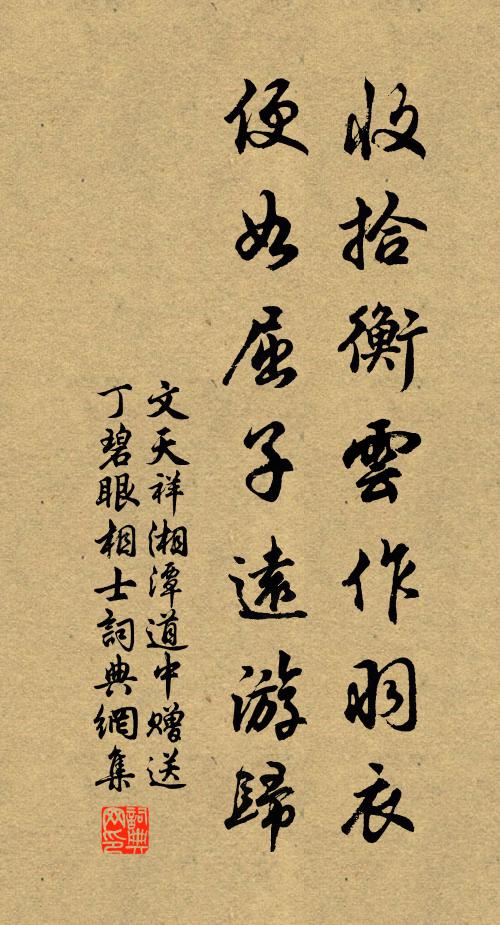 收拾衡雲作羽衣
便如屈子遠游歸
文天祥湘潭道中贈送
丁碧眼相士詞典網集
詞典
网印